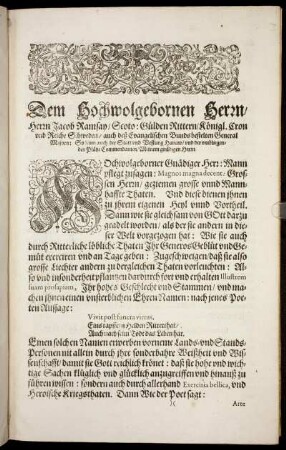 Dem Hochwolgebornen Herrn/
Herrn Jacob Ramsay/ Scoto: Gülden Rittern/ Königl. Cron
und Reiche Schweden/ auch deß Evangelischen Bunds bestelten General
Majorn: So dann auch der Statt und Vestung Hanaw/ und der umbligen-
der Plätz Commendanten/ Meinem gnädigen Herrn
Hochwolgeborner Gnädiger Herr: Mann
pflegt zusagen: Magnos magna decent. Gros-
sen Herrn/ geziemen grosse unnd Mann-
haffte Thaten. Und diese dienen jhnen
zu jhrem eigenen Heyl unnd Vortheil.
Dann wie sie gleichsam von Gott darzu
geadelt worden: als der sie andern in die-
ser Welt vorgezogen hat: Wie sie auch
durch Ritterliche löbliche Thaten Jhr Generos Geblüt und Ge-
müt exerciren und an Tag geben: Zugeschweigen/ daß sie also
grosse Liechter andern zu dergleichen Thaten vorleuchten: Al-
so und insonderheit pflantzen sie dardurch fort und erhalten Illustrem
suam prosapiam, Jhr hohes Geschlecht und Stammen/ und ma-
chen jhnen einen unsterblichen Ehren Namen: nach jenes Poe-
ten Aussage:
Vivit post funera virtus,
Eins tapffern Helden Ritterthat/
Auch nach seim Tod das Leben hat.
Einen solchen Namen erwerben vorneme Lands- und Stands-
Personen nit allein durch jhre sonderbahre Weißheit und Wis-
senschafft/ damit sie Gott reichlich krönet: daß sie hohe und wich-
tige Sachen klüglich und glücklich anzugreiffen und hinauß zu
führen wissen: sondern auch durch allerhand Exercitia bellica, und
Heroische Kriegsthaten. Dann Wie der Poet sagt:
)(
Arte